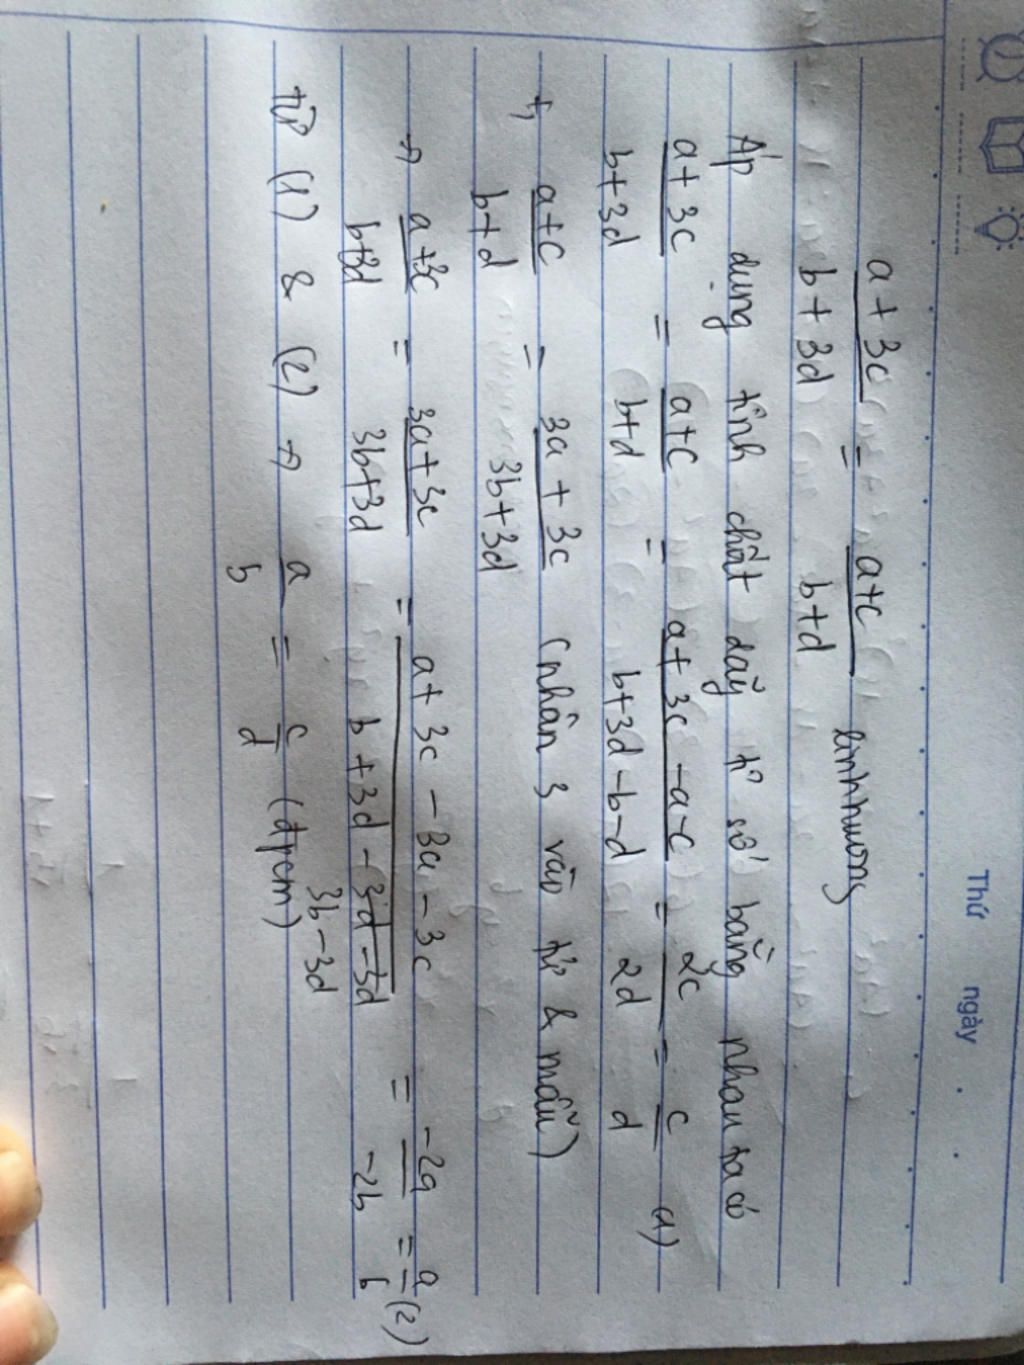 Thứ ngày
a + 3c / b + 3d = a+c / b+d linhhuong
Áp dụng tính chất dãy tỉ số bằng nhau ta có
a + 3c / b + 3d = a+c / b+d = a + 3c - a - c / b+3d - b - d = 2c / 2d = c / d (1)
+, a+c / b+d = 3a + 3c / 3b+3d (nhân 3 vào tử & mẫu)
→ a+3c / b+3d = 3a+3c / 3b+3d = a+ 3c - 3a - 3c / b +3d - 3b-3d = -2a / -2b = a / b (2)
từ (1) & (2) → a / b = c / d (đpcm)